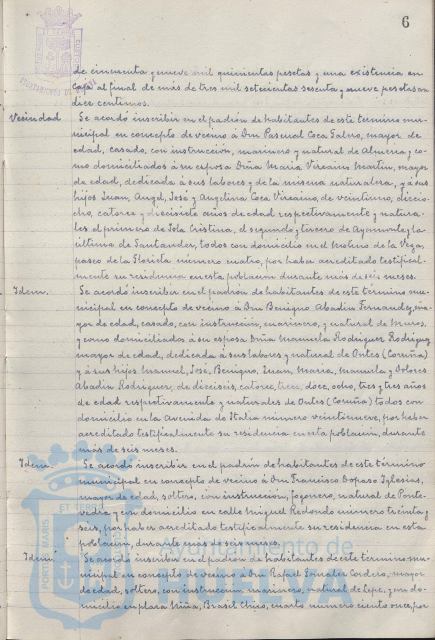 6
de cincuenta y nueve mil quinientas pesetas y una existencia en
caja al final de mas de tres mil setecientas sesenta y nueve pesetas
doce centimos.
Vecindad Se acordó inscribir en el padrón de habitantes de este termino mu-
nicipal en concepto de vecino á Don Pascual Coca Salvo, mayor de
edad, casado, con instrucción, marinero y natural de Almeria y co-
mo domiciliados á su esposa Doña Maria Virsaino Martin, mayor
de edad, dedicada á sus labores y de la misma naturaleza, y á sus
hijos Juan, Angel, José y Angelina Coca Virsaino, de veintiuno, diecio-
cho, catorce y diecisiete años de edad respectivamente y natura-
les el primero de Isla Cristina, el segundo y tercero de Ayamonte y la
última de Santander, todos con domicilio en el Molino de la Vega,
paseo de la Glorieta número cuatro, por haber acreditado testifical-
mente su residencia en esta población durante más de seis meses.
Idem. Se acordó inscribir en el padrón de habitantes de este término mu-
nicipal en concepto de vecino á Don Benigno Abadin Fernandez, ma-
yor de edad, casado, con instrucción, marinero, y natural de Muros,
y como domiciliados á su esposa Doña Manuela Rodriguez Rodriguez
mayor de edad, dedicada á sus labores y natural de Ontes (Coruña)
y á sus hijos Manuel, José, Benigno, Juan, Maria, Manuela y Dolores
Abadin Rodriguez, de dieciseis, catorce, trece, doce, ocho, tres y tres años
de edad respectivamente y naturales de Ontes (Coruña) todos con
domicilio en la Avenida de Italia número veintinueve, por haber
acreditado testificalmente su residencia en esta población, durante
más de seis meses.
Idem. Se acordó inscribir en el padrón de habitantes de este término
municipal en concepto de vecino á Don Francisco Dopaso Iglesias,
mayor de edad, soltero, con instrucción, fogonero, natural de Ponte-
vedra y con domicilio en calle Miguel Redondo número treinta y
seis, por haber acreditado testificalmente su residencia en esta
población, durante más de seis meses.
Idem. Se acordó inscribir en el padrón de habitantes de este término mu-
nicipal en concepto de vecino á Don Rafael Gonzalez Cordero, mayor
de edad, soltero, con instrucción, marinero, natural de Lepe, y con do-
micilio en plaza Niña, Brasil Chico, cuarto número ciento once, por
Ayuntamiento de
PORTUS MARIS ET